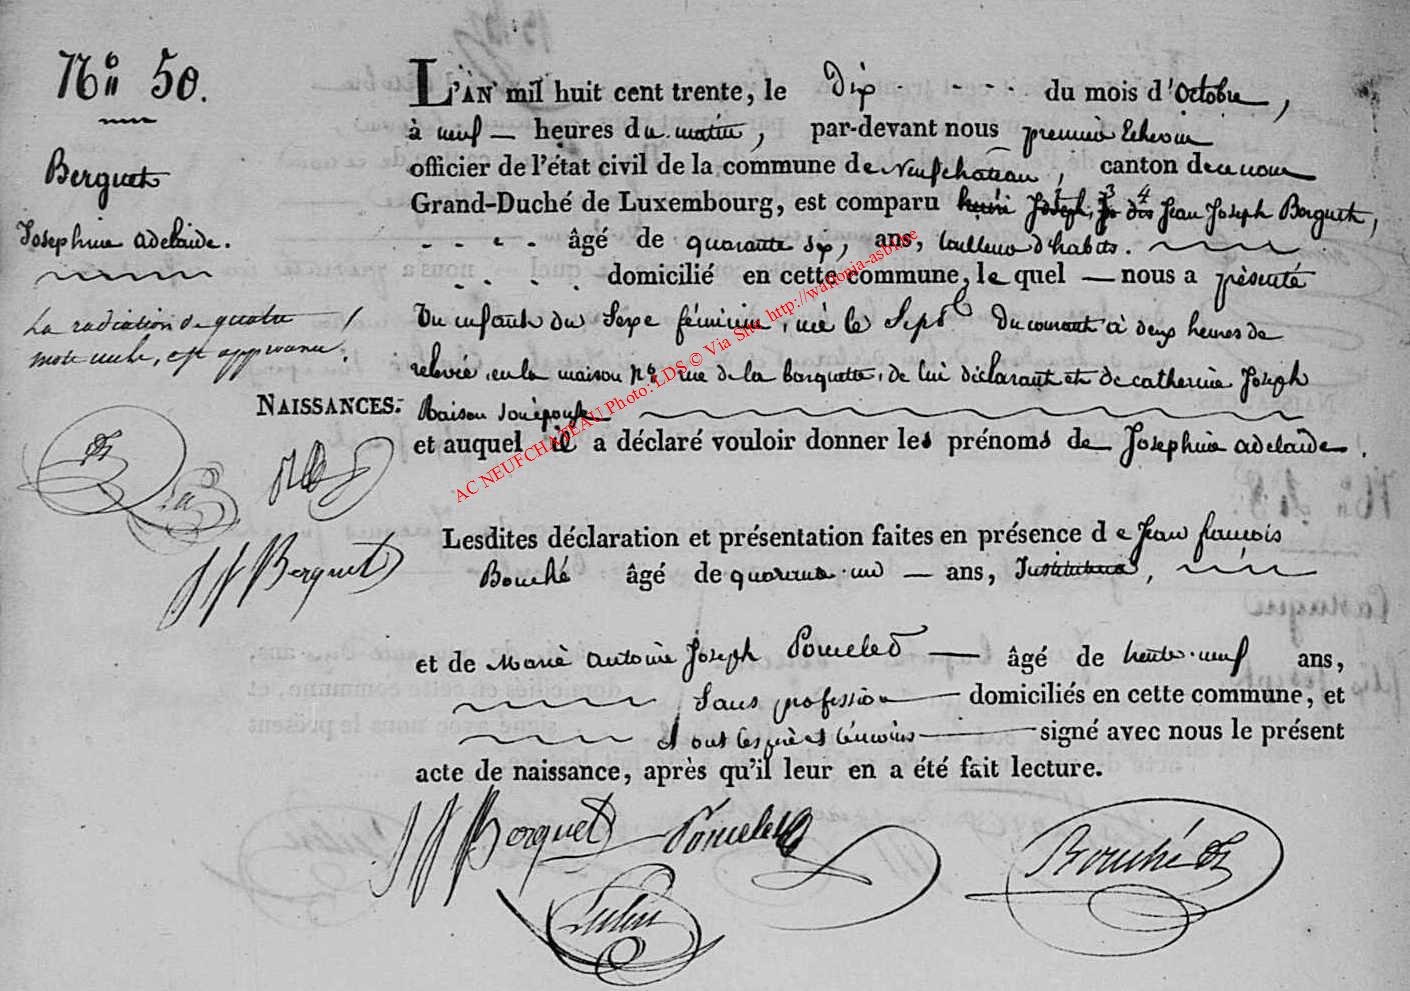 No 50.
Berguet
Josephine adelaïde.
La radiation de quatre
mots nuls, est approuvée.
NAISSANCES.
JJ Berguet
L'AN mil huit cent trente, le dix du mois d'octobre,
à neuf heures du matin, par-devant nous premier Echevin
officier de l'état civil de la commune de Neufchateau, canton de ce nom
Grand-Duché de Luxembourg, est comparu Jean Joseph Berguet,
âgé de quarante six, ans, tailleur d'habits.
domicilié en cette commune, le quel nous a présenté
Un enfant du Sexe féminin, né le Sept du courant à deux heures de
relevée, en la maison no rue de la barquette, de lui déclarant et de catherine Joseph
Raison son épouse
et auquel il a déclaré vouloir donner les prénoms de Josephine adelaïde.
Lesdites déclaration et présentation faites en présence de Jean françois
Bouché âgé de quarante-un ans, Instituteur,
et de Marie antoine Joseph Poncelet âgé de trente-neuf ans,
Sans profession domiciliés en cette commune, et
ont les père et témoins signé avec nous le présent
acte de naissance, après qu'il leur en a été fait lecture.
JJ Berguet Poncelet Bouché
AC NEUFCHATEAU Photo: LDS © Via Site http://wallonia-asbl.be